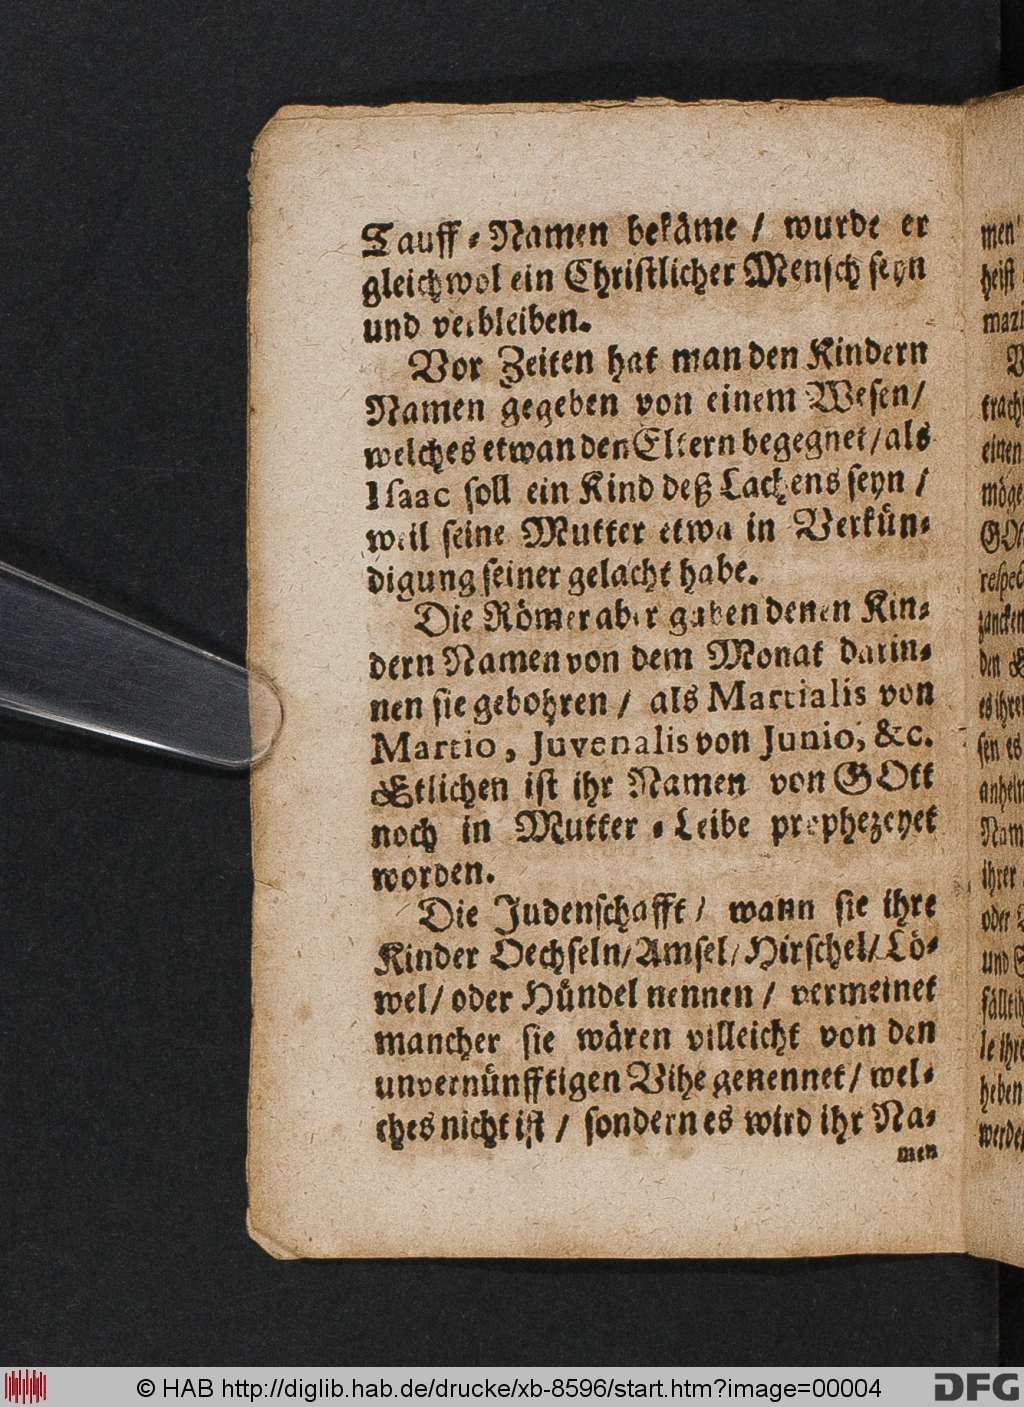 Tauff-Namen bekäme / wurde er
gleichwol ein Christlicher Mensch seyn
und verbleiben.
Vor Zeiten hat man den Kindern
Namen gegeben von einem Wesen /
welches etwan den Eltern begegnet / als
Isaac soll ein Kind deß Lachens seyn /
weil seine Mutter etwa in Verkün-
digung seiner gelacht habe.
Die Römer aber gaben denen Kin-
dern Namen von dem Monat darin-
nen sie gebohren / als Martialis von
Martio, Juvenalis von Junio, &c.
Etlichen ist ihr Namen von GOtt
noch in Mutter-Leibe prophezeyet
worden.
Die Judenschafft / wann sie ihre
Kinder Oechseln / Amsel / Hirschel / Lö-
wel / oder Hündel nennen / vermeinet
mancher sie wären villeicht von den
unvernünfftigen Vihe genennet / wel-
ches nicht ist / sondern es wird ihr Na-
men
© HAB http://diglib.hab.de/drucke/xb-8596/start.htm?image=00004
DFG